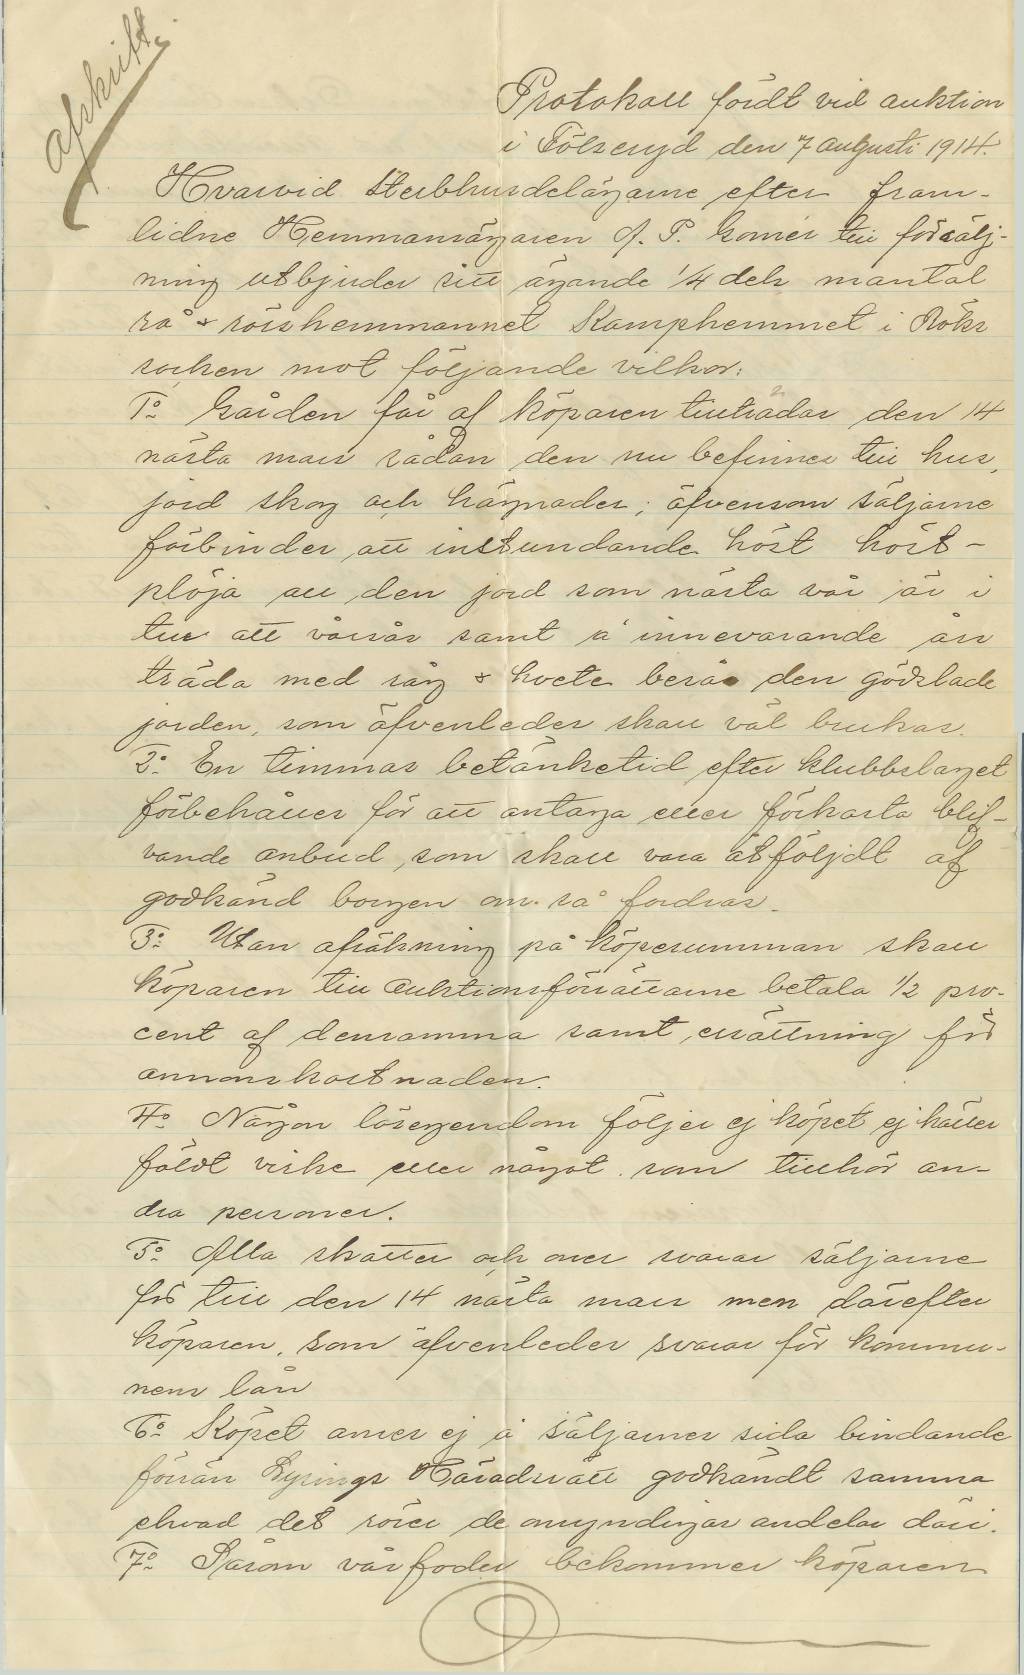 Afskrift.
Protokoll fördt vid auktion
i Fölseryd den 7 augusti 1914.
Hvarvid Sterbhusdelägarne efter fram-
lidne Hemmansägaren A. P. Gomér till försälj-
ning utbjuder sitt ägande 1/4 dels mantal
rå & rörshemmannet Kamphemmet i Röks
socken mot följande vilkor:
1o Gården får af köparen tillträdas den 14
nästa mars sådan den nu befinnes till hus,
jord skog och hägnader; äfvensom säljarne
förbinder att instundande höst höst-
plöja all den jord som nästa vår är i
tur att vårsås samt å innevarande års
träda med råg & hvete beså den gödslade
jorden, som äfvenledes skall väl brukas.
2o En timmas betänketid efter klubbslaget
förbehålles för att antaga eller förkasta blif-
vande anbud, som skall vara åtföljdt af
godkänd borgen om så fordras.
3o Utan afräkning på köpesumman skall
köparen till Auktionsförrättarne betala 1/2 pro-
cent af densamma samt ersättning för
annonskostnaden.
4o Någon lösegendom följer ej köpet ej häller
fäldt virke eller något som tillhör an-
dra personer.
5o Alla skatter och oner svarar säljarne
för till den 14 nästa mars men därefter
köparen, som äfvenledes svarar för kommu-
nens lån
6o Köpet anses ej å säljarnes sida bindande
förrän Lysings Häradsrätt godkändt samma
ehvad det rörer de omyndigas andelar däri.
7o Såsom vårfoder bekommer köparen